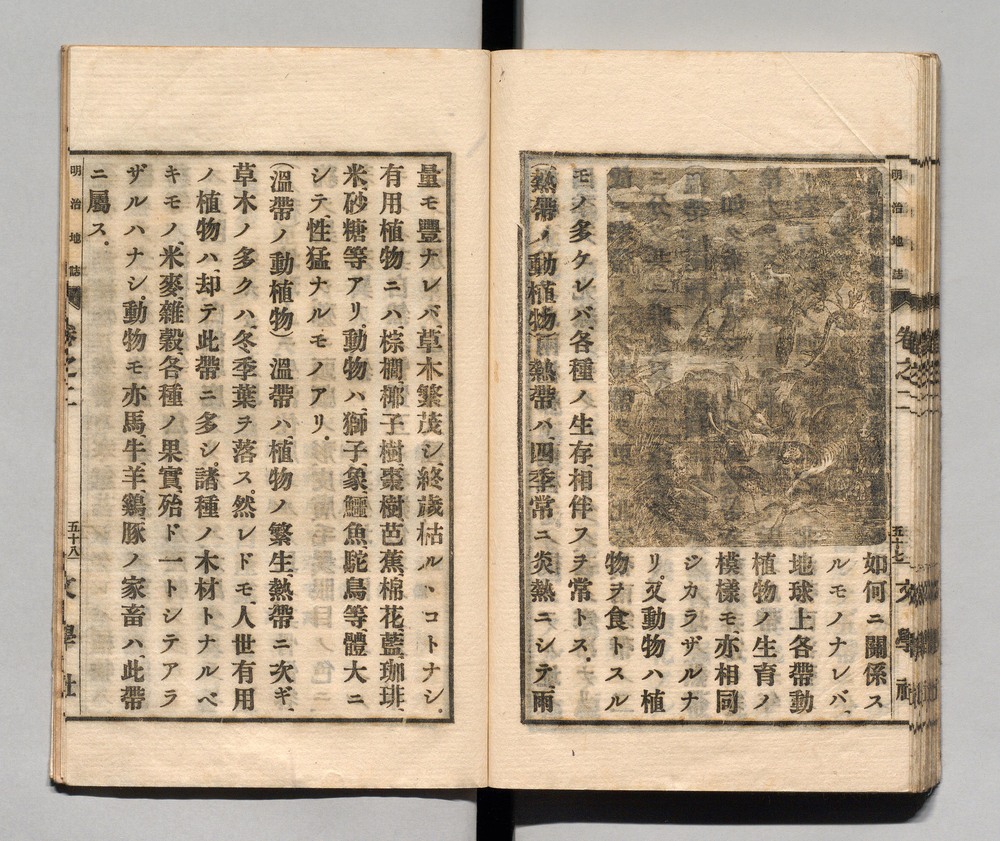 明治地誌 卷之二 五十七 文學社
如何ニ關係ス
ルモノナレバ、
地球上各帶動
植物ノ生育ノ
樸樣モ、亦相同
ジカラザルナ
リ、又動物ハ植
物ヲ食トスル
モノ多ケレバ、各種ノ生存、相伴フヲ常トス。
(熱帶ノ動植物) 熱帶ハ、四季常ニ炎熱ニシテ、雨
量モ豐ナレバ、草木繁茂シ、終歲枯ルヽコトナシ。
有用植物ニハ、棕櫚、椰子樹、棗樹、芭蕉、棉花、藍、珈琲、
米、砂糖等アリ。動物ハ、獅子、象、鱷魚、駝鳥等、體大ニ
シテ、性猛ナルモノアリ。
(溫帶ノ動植物) 溫帶ハ、植物ノ繁生、熱帶ニ次ギ、
草木ノ多クハ、冬季葉ヲ落ス。然レドモ、人世有用
ノ植物ハ、却テ此帶ニ多シ。諸種ノ木材トナルベ
キモノ、米、麥、雜穀、各種ノ果實、殆ド一トシテアラ
ザルハナシ。動物モ亦馬、牛、羊、鷄、豚ノ家畜ハ、此帶
ニ屬ス。
明治地誌 卷之二 五十八 文學社